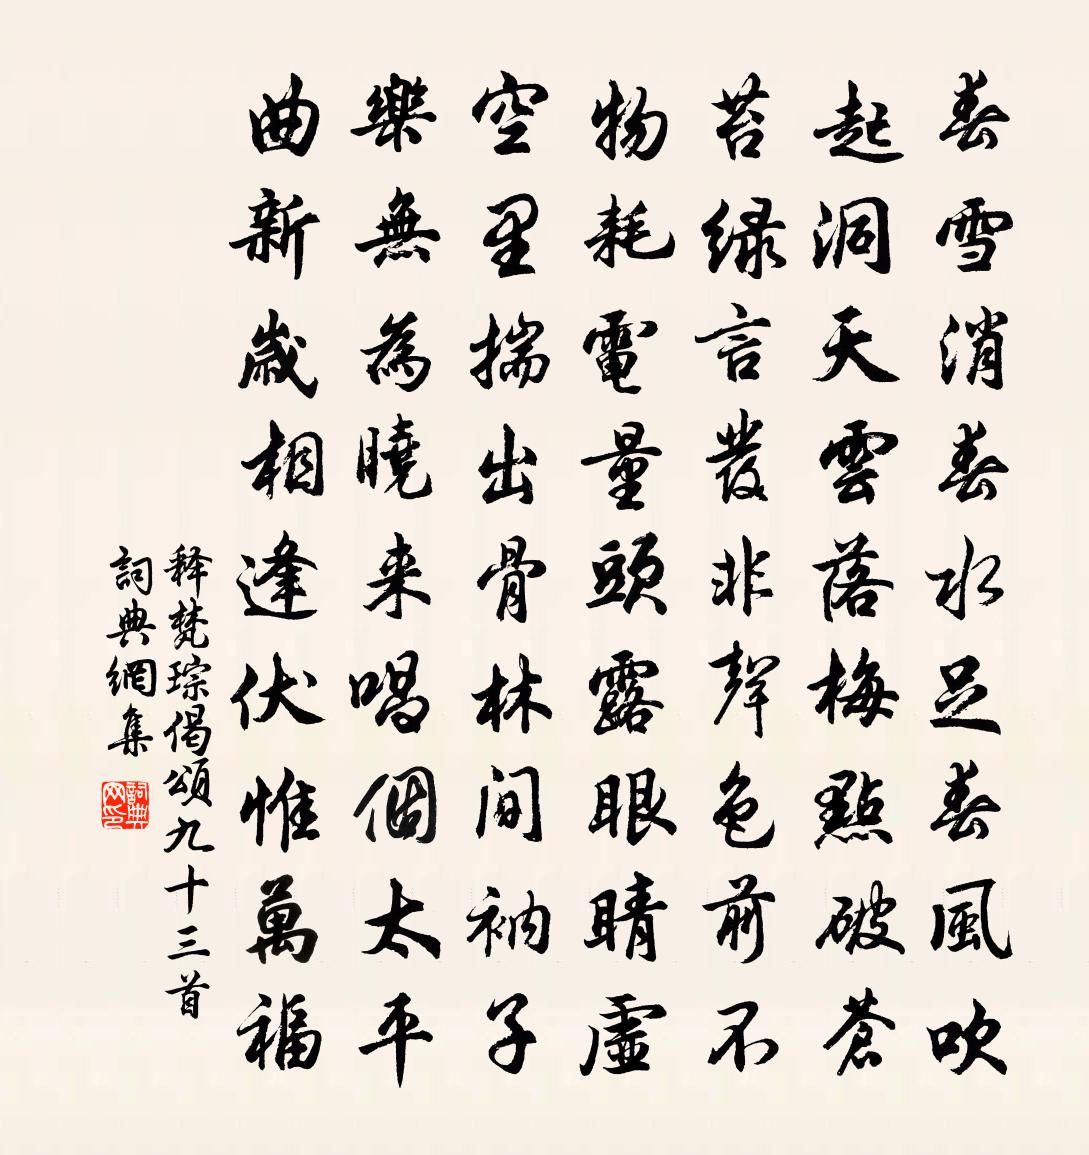 春雪消春水足春風吹
起洞天雲落梅點破蒼
苔绿言發非聲色前不
物耗電量頭露眼睛虛
空里揣出骨林间衲子
樂無為曉来唱個太平
曲新歲相逢伏惟萬福
释梵琮偈頌九十三首
詞典網集
詞典网印